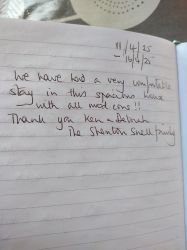 11/4/25
- 14/4/25
We have had a very comfortable
stay in this spacious house
with all mod cons !!
Thank you Ken & Deborah
The Shenton Snell family